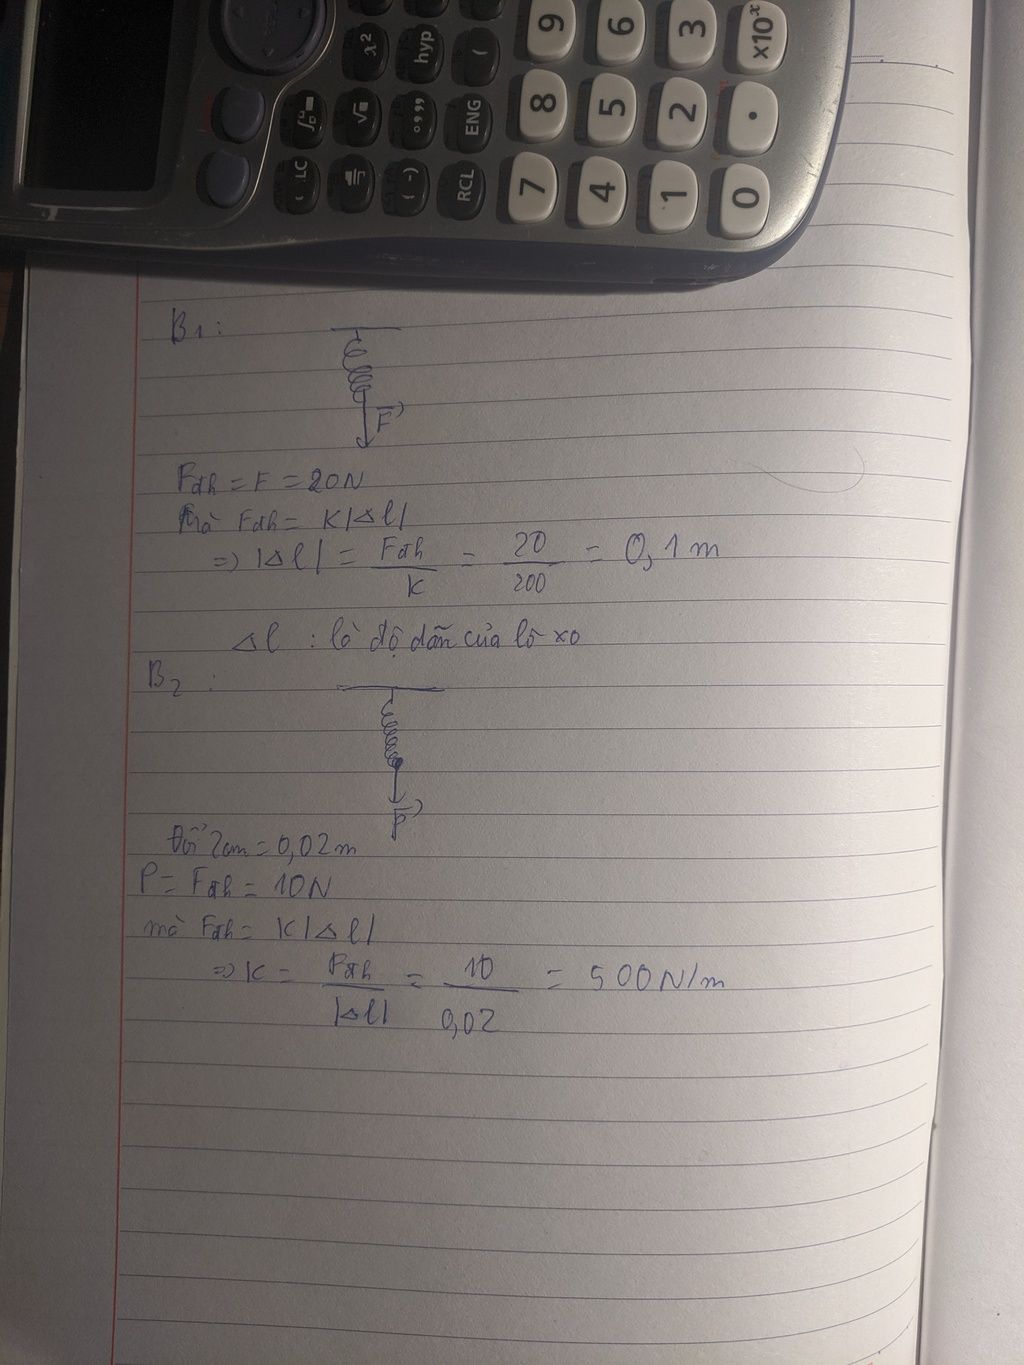 x² hyp ( 9 6 3 ×10ˣ
√ °,,, ENG 8 5 2 •
(-) RCL 7 4 1 0
B1:
F
Fđh = F = 20N
mà Fđh = K|Δl|
=> |Δl| = Fđh / K = 20 / 200 = 0,1m
Δl : là độ dãn của lò xo
B2 :
P
Đổi 2cm = 0,02m
P = Fđh = 10N
mà Fđh = K|Δl|
=> K = Fđh / |Δl| = 10 / 0,02 = 500N/m